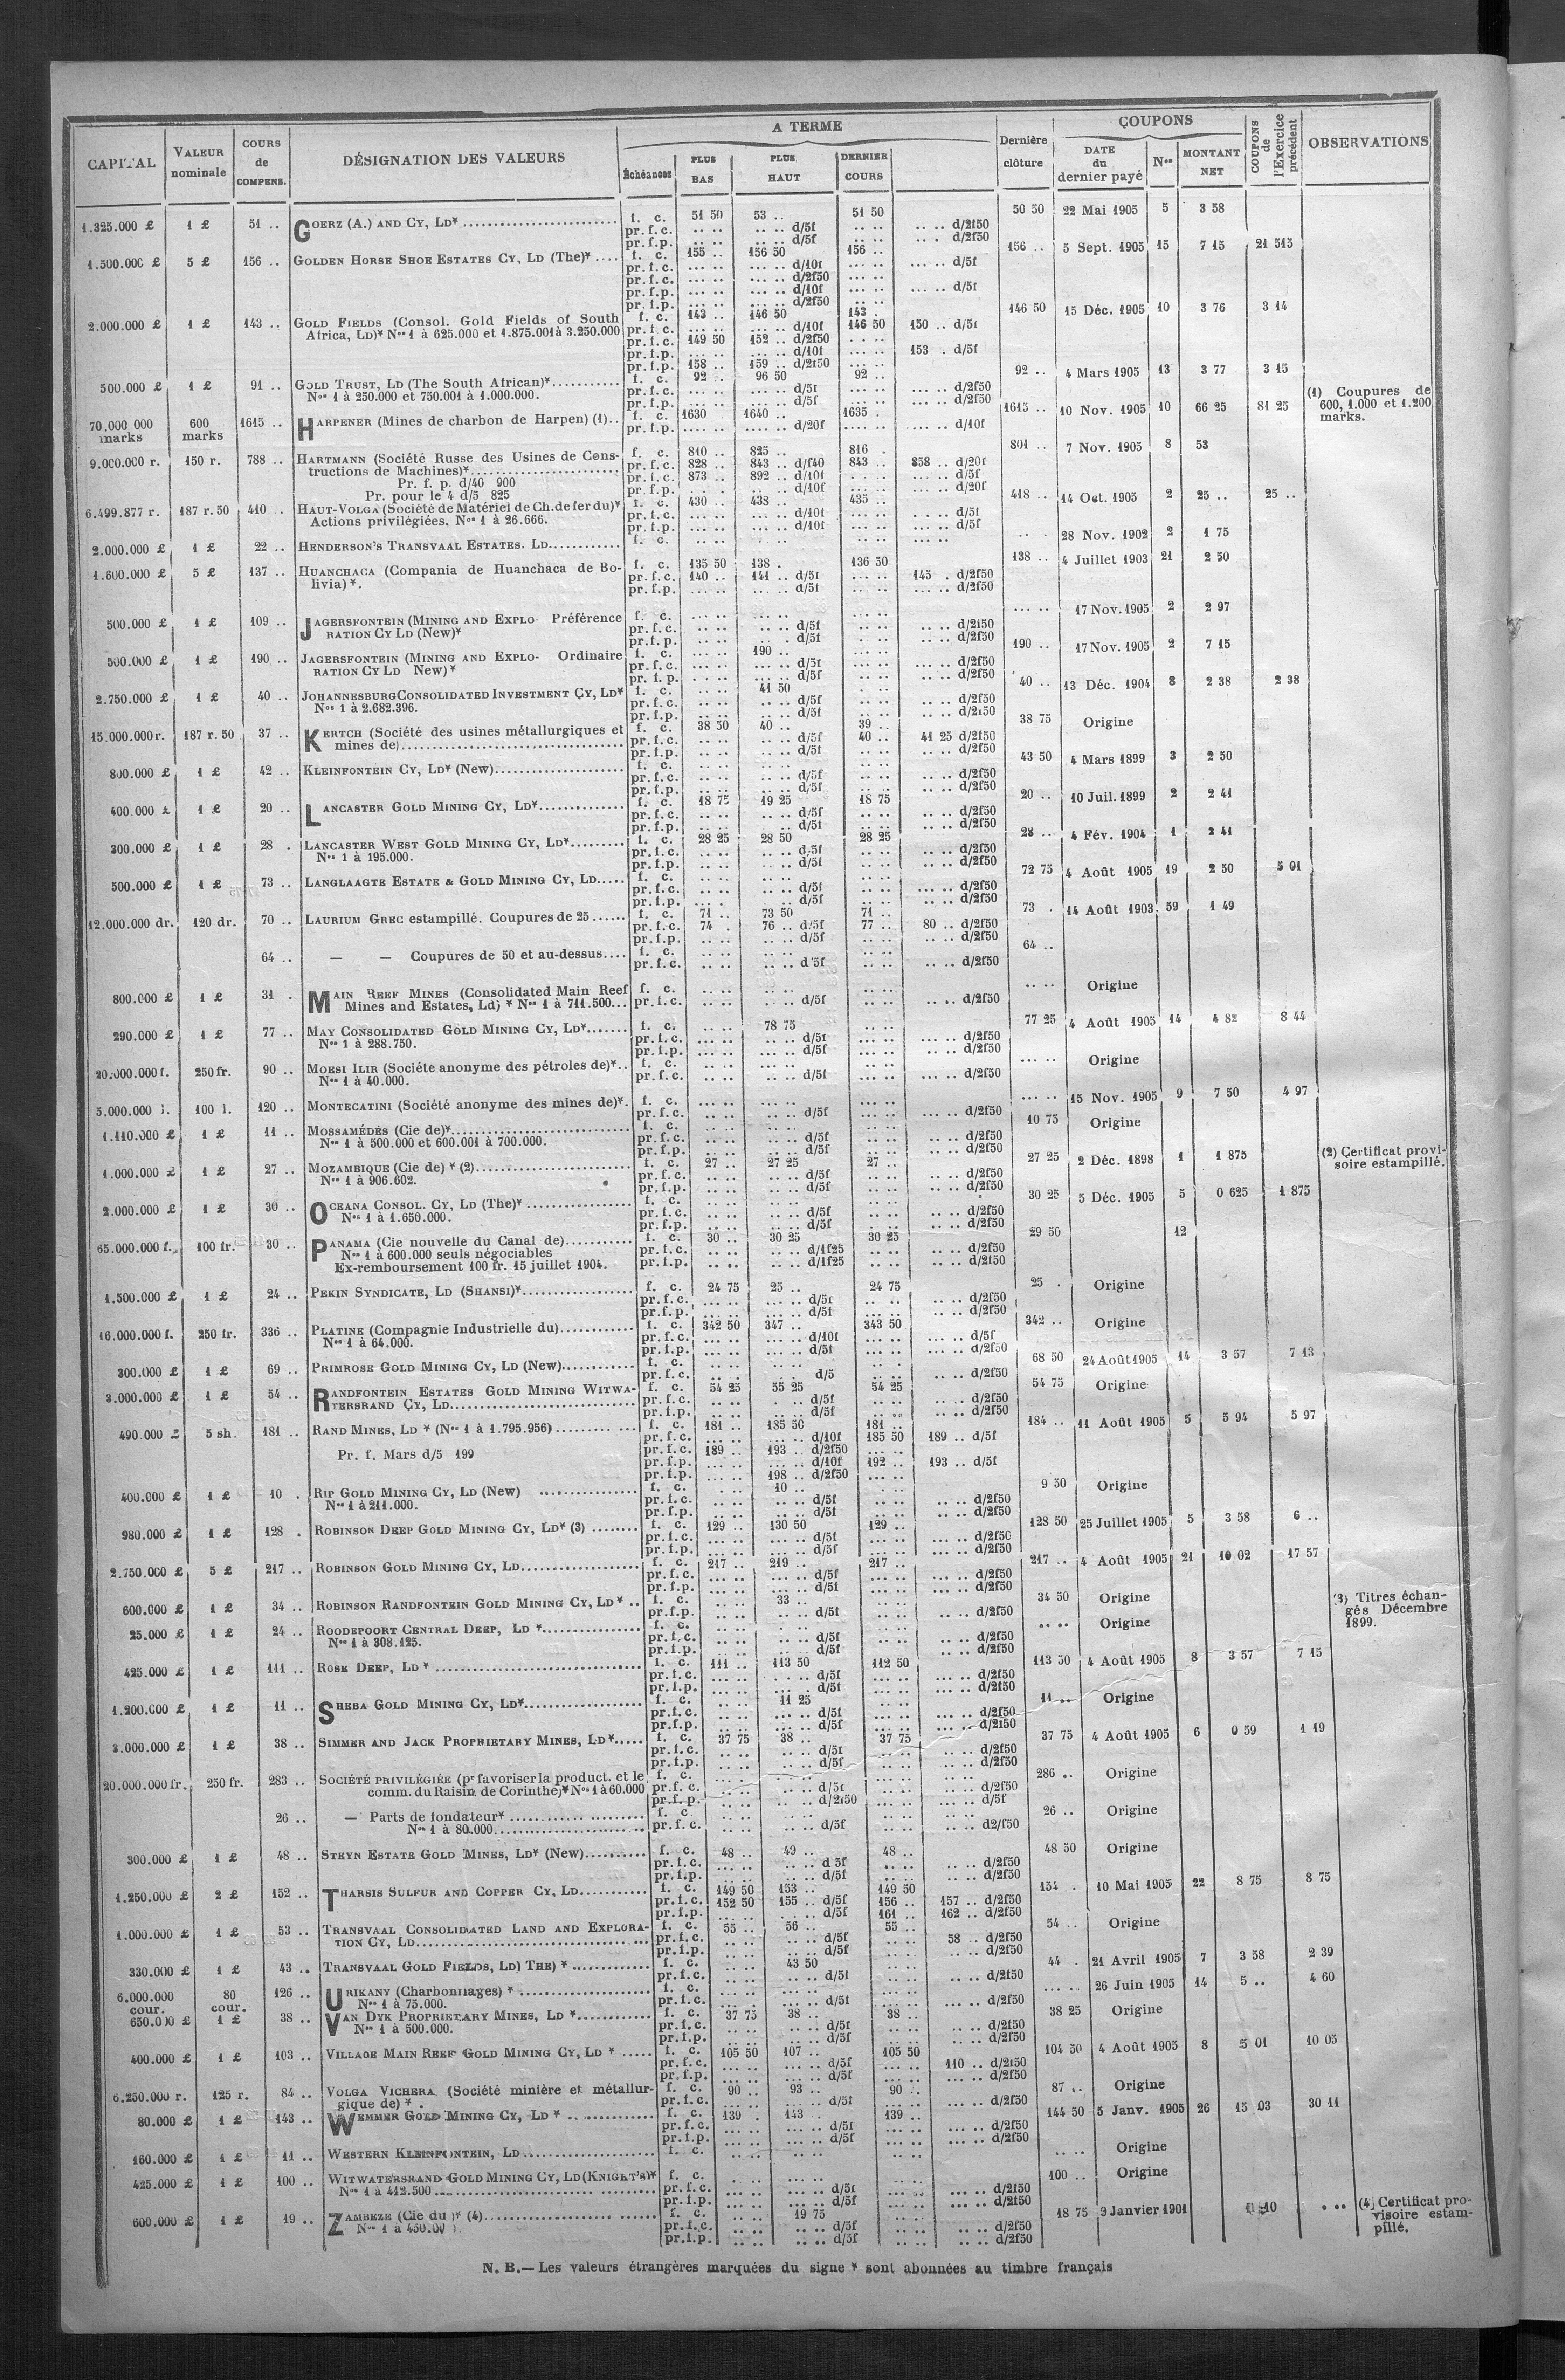 CAPITAL | VALEUR nominale | COURS de COMPENS. | DÉSIGNATION DES VALEURS | A TERME | Dernière clôture | COUPONS | COUPONS de l'Exercice précédent | OBSERVATIONS
Échéances | PLUS BAS | PLUS HAUT | DERNIER COURS | DATE du dernier payé | Nos | MONTANT NET
1.325.000 £ 1 £ 51 .. GOERZ (A.) AND CY, LD* f. c. 51 50 53 .. 51 50 50 50 22 Mai 1905 5 3 58
pr. f. c. .. .. .. .. d/5f .. .. .. .. d/2f50
pr. f. p. .. .. .. .. d/5f .. .. .. . d/2f50
1.500.000 £ 5 £ 156 .. GOLDEN HORSE SHOE ESTATES CY, LD (The)* f. c. 155 .. 156 50 156 .. 156 .. 5 Sept. 1905 15 7 15 21 515
pr. f. c. ... .. ... .. d/10f ... .. ... .. d/5f
pr. f. c. ... .. ... .. d/2f50
pr. f. p. ... .. ... .. d/10f ... .. ... .. d/5f
pr. f. p. ... .. ... .. d/2f50
2.000.000 £ 1 £ 143 .. GOLD FIELDS (Consol. Gold Fields of South f. c. 143 .. 146 50 143 . 146 50 15 Déc. 1905 10 3 76 3 14
Africa, LD)* Nos 1 à 625.000 et 1.875.001 à 3.250.000 pr. f. c. ... .. ... .. d/10f 146 50 150 .. d/5f
pr. f. c. 149 50 152 .. d/2f50
pr. f. p. ... .. ... .. d/10f ... .. 153 . d/5f
pr. f. p. 158 .. 159 .. d/2f50
500.000 £ 1 £ 91 .. GOLD TRUST, LD (The South African)* f. c. 92 .. 96 50 92 .. 92 .. 4 Mars 1905 13 3 77 3 15
Nos 1 à 250.000 et 750.001 à 1.000.000. pr. f. c. ... .. ... .. d/5f ... .. ... .. d/2f50
pr. f. p. ... .. ... .. d/5f ... .. ... .. d/2f50
(1) Coupures de 600, 1.000 et 1.200 marks.
70.000 000 marks 600 marks 1615 .. HARPENER (Mines de charbon de Harpen) (1).. f. c. 1630 1640 .. 1635 . 1615 .. 10 Nov. 1905 10 66 25 81 25
pr. f. p. .... .. .... .. d/20f .... .. .... .. d/10f
9.000.000 r. 150 r. 788 .. HARTMANN (Société Russe des Usines de Cons- f. c. 810 .. 825 .. 816 . 801 .. 7 Nov. 1905 8 53
tructions de Machines)* pr. f. c. 828 .. 843 .. d/f40 843 .. 858 .. d/20f
Pr. f. p. d/40 900 pr. f. c. 873 .. 892 .. d/10f ... .. d/5f
Pr. pour le 4 d/5 825 pr. f. p. ... .. d/10f ... .. d/20f
6.499.877 r. 187 r. 50 410 .. HAUT-VOLGA (Société de Matériel de Ch. de fer du)* f. c. 430 .. 438 .. 435 .. 418 .. 14 Oct. 1905 2 25 .. 25 ..
Actions privilégiées. Nos 1 à 26.666. pr. f. c. ... .. ... .. d/10f ... .. ... .. d/5f
pr. f. p. ... .. ... .. d/10f ... .. ... .. d/5f
2.000.000 £ 1 £ 22 .. HENDERSON'S TRANSVAAL ESTATES. LD f. c. .. .. .. .. 28 Nov. 1902 2 1 75
1.600.000 £ 5 £ 137 .. HUANCHACA (Compania de Huanchaca de Bo- f. c. 135 50 138 . 136 50 138 .. 4 Juillet 1903 21 2 50
livia)*. pr. f. c. 140 .. 141 .. d/5f ... .. 145 . d/2f50
pr. f. p. ... .. ... .. d/5f ... .. ... .. d/2f50
500.000 £ 1 £ 109 .. JAGERSFONTEIN (MINING AND EXPLO- Préférence f. c. ... .. ... .. ... .. ... .. 17 Nov. 1905 2 2 97
RATION CY LD (New)* pr. f. c. ... .. .. .. d/5f ... .. .. .. d/2f50
pr. f. p. ... .. .. . d/5f .. .. .. .. d/2f50
500.000 £ 1 £ 190 .. JAGERSFONTEIN (MINING AND EXPLO- Ordinaire f. c. ... .. 190 .. ... .. 190 .. 17 Nov. 1905 2 7 15
RATION CY LD New)* pr. f. c. ... .. ... .. d/5f ... .. ... .. d/2f50
pr. f. p. ... .. ... .. d/5f ... .. ... .. d/2f50
2.750.000 £ 1 £ 40 .. JOHANNESBURG CONSOLIDATED INVESTMENT CY, LD* f. c. .. .. 41 50 .. .. 40 .. 13 Déc. 1904 8 2 38 2 38
Nos 1 à 2.682.396. pr. f. c. .. .. .. .. d/5f .. .. .. .. d/2f50
pr. f. p. .. .. .. .. d/5f .. .. .. .. d/2f50
15.000.000 r. 187 r. 50 37 .. KERTCH (Société des usines métallurgiques et f. c. 38 50 40 .. 39 .. 38 75 Origine
mines de) pr. f. c. .. .. .. .. d/5f 40 .. 41 25 d/2f50
pr. f. p. .. .. .. .. d/5f .. .. .. .. d/2f50
800.000 £ 1 £ 42 .. KLEINFONTEIN CY, LD* (New) f. c. .. .. .. .. .. .. 43 50 4 Mars 1899 3 2 50
pr. f. c. .. .. .. .. d/5f .. .. .. .. d/2f50
pr. f. p. .. .. .. .. d/5f .. .. .. .. d/2f50
400.000 £ 1 £ 20 .. LANCASTER GOLD MINING CY, LD* f. c. 18 75 19 25 18 75 20 .. 10 Juil. 1899 2 2 41
pr. f. c. .. .. .. .. d/5f .. .. .. .. d/2f50
pr. f. p. .. .. .. .. d/5f .. .. .. .. d/2f50
300.000 £ 1 £ 28 . LANCASTER WEST GOLD MINING CY, LD* f. c. 28 25 28 50 28 25 28 .. 4 Fév. 1904 1 2 41
Nos 1 à 195.000. pr. f. c. .. .. .. .. d/5f .. .. .. .. d/2f50
pr. f. p. .. .. .. .. d/5f .. .. .. .. d/2f50
500.000 £ 1 £ 73 .. LANGLAAGTE ESTATE & GOLD MINING CY, LD f. c. .. .. .. .. .. .. 72 75 4 Août 1905 19 2 50 5 01
pr. f. c. ... .. ... .. d/5f ... .. ... .. d/2f50
pr. f. p. ... . ... .. d/5f ... .. ... .. d/2f50
12.000.000 dr. 120 dr. 70 .. LAURIUM GREC estampillé. Coupures de 25 f. c. 71 .. 73 50 71 .. 73 . 14 Août 1903 59 1 49
pr. f. c. 74 . 76 .. d/5f 77 .. 80 .. d/2f50
pr. f. p. .. .. .. .. d/5f .. .. .. .. d/2f50
64 .. — — Coupures de 50 et au-dessus f. c. .. .. .. .. .. .. 64 ..
pr. f. c. .. .. .. .. d 5f .. .. .. .. d/2f50
800.000 £ 1 £ 31 . MAIN REEF MINES (Consolidated Main Reef f. c. .. .. .. .. .. .. .. .. Origine
Mines and Estates, Ld) * Nos 1 à 711.500... pr. f. c. .. .. .. .. d/5f .. .. .. .. d/2f50
290.000 £ 1 £ 77 .. MAY CONSOLIDATED GOLD MINING CY, LD* f. c. .. .. 78 75 .. .. 77 25 4 Août 1905 14 4 82 8 44
Nos 1 à 288.750. pr. f. c. ... .. ... .. d/5f ... .. ... .. d/2f50
pr. f. p. ... .. ... .. d/5f .. .. .. .. d/2f50
20.000.000 f. 250 fr. 90 .. MOESI ILIR (Sociéte anonyme des pétroles de)*.. f. c. .. .. .. .. .. .. ... .. Origine
Nos 1 à 40.000. pr. f. c. .. .. .. .. d/5f .. .. ... .. d/2f50
5.000.000 l. 100 l. 120 .. MONTECATINI (Société anonyme des mines de)*. f. c. ... .. ... .. ... .. ... .. 15 Nov. 1905 9 7 50 4 97
pr. f. c. .. .. .. .. d/5f .. .. ... .. d/2f50
1.110.000 £ 1 £ 11 .. MOSSAMÉDÈS (Cie de)* f. c. .. .. .. .. .. .. 10 75 Origine
Nos 1 à 500.000 et 600.001 à 700.000. pr. f. c. .. .. .. .. d/5f .. .. .. .. d/2f50
pr. f. p. .. .. .. .. d/5f .. .. .. .. d/2f50
1.000.000 £ 1 £ 27 .. MOZAMBIQUE (Cie de) * (2) f. c. 27 .. 27 25 27 .. 27 25 2 Déc. 1898 1 1 875
(2) Certificat provi- soire estampillé.
Nos 1 à 906.602. pr. f. c. .. .. .. .. d/5f .. .. .. .. d/2f50
pr. f. p. .. .. .. .. d/5f .. .. .. .. d/2f50
2.000.000 £ 1 £ 30 .. OCEANA CONSOL. CY, LD (The)* f. c. .. .. .. .. .. .. 30 25 5 Déc. 1905 5 0 625 1 875
Nos 1 à 1.650.000. pr. f. c. .. .. .. .. d/5f .. .. .. .. d/2f50
pr. f. p. .. .. .. .. d/5f .. .. .. .. d/2f50
65.000.000 f. 100 fr. 30 .. PANAMA (Cie nouvelle du Canal de) f. c. 30 .. 30 25 30 25 29 50 12
Nos 1 à 600.000 seuls négociables pr. f. c. .. .. .. .. d/1f25 .. .. .. .. d/2f50
Ex-remboursement 100 fr. 15 juillet 1904. pr. f. p. .. .. .. .. d/1f25 .. .. .. .. d/2f50
1.500.000 £ 1 £ 24 .. PEKIN SYNDICATE, LD (SHANSI)* f. c. 24 75 25 .. 24 75 25 . Origine
pr. f. c. ... .. ... .. d/5f .. .. ... .. d/2f50
pr. f. p. ... .. ... .. d/5f ... .. ... .. d/2f50
16.000.000 f. 250 fr. 336 .. PLATINE (Compagnie Industrielle du) f. c. 342 50 347 .. 343 50 342 .. Origine
Nos 1 à 64.000. pr. f. c. ... .. ... .. d/10f ... .. ... .. d/5f
pr. f. p. ... .. ... .. d/5f ... .. ... .. d/2f50
300.000 £ 1 £ 69 .. PRIMROSE GOLD MINING CY, LD (New) f. c. .. .. .. .. .. . 68 50 24 Août 1905 14 3 57 7 13
pr. f. c. .. .. .. .. d/5 .. .. ... .. d/2f50
3.000.000 £ 1 £ 54 .. RANDFONTEIN ESTATES GOLD MINING WITWA- f. c. 54 25 55 25 54 25 54 75 Origine
TERSRAND CY, LD pr. f. c. .. .. .. . d/5f .. .. .. .. d/2f50
pr. f. p. .. .. .. .. d/5f .. .. .. .. d/2f50
490.000 £ 5 sh. 181 .. RAND MINES, LD * (Nos 1 à 1.795.956) f. c. 181 .. 185 50 181 .. 184 .. 11 Août 1905 5 5 94 5 97
pr. f. c. ... .. ... .. d/10f 185 50 189 .. d/5f
Pr. f. Mars d/5 199 pr. f. c. 189 .. 193 .. d/2f50 ... ..
pr. f. p. ... .. ... .. d/10f 192 .. 193 .. d/5f
pr. f. p. ... .. 198 .. d/2f50 ... ..
400.000 £ 1 £ 10 . RIP GOLD MINING CY, LD (New) f. c. .. .. 10 .. .. .. 9 50 Origine
Nos 1 à 211.000. pr. f. c. .. .. .. .. d/5f .. .. .. .. d/2f50
pr. f. p. .. .. .. .. d/5f .. .. .. .. d/2f50
980.000 £ 1 £ 128 . ROBINSON DEEP GOLD MINING CY, LD* (3) f. c. 129 .. 130 50 129 .. 128 50 25 Juillet 1905 5 3 58 6 ..
pr. f. c. ... .. ... .. d/5f ... .. ... .. d/2f50
pr. f. p. ... .. ... .. d/5f ... .. ... .. d/2f50
2.750.000 £ 5 £ 217 .. ROBINSON GOLD MINING CY, LD f. c. 217 .. 219 .. 217 .. 217 .. 4 Août 1905 21 10 02 17 57
pr. f. c. ... .. ... .. d/5f ... .. ... .. d/2f50
pr. f. p. ... .. ... .. d/5f ... .. ... .. d/2f50
600.000 £ 1 £ 34 .. ROBINSON RANDFONTEIN GOLD MINING CY, LD * .. f. c. .. .. 33 .. .. .. 34 50 Origine
pr. f. p. .. .. .. .. d/5f .. .. .. .. d/2f50
(3) Titres échan- gés Décembre 1899.
25.000 £ 1 £ 24 .. ROODEPOORT CENTRAL DEEP, LD * f. c. .. .. .. .. .. .. .. .. Origine
Nos 1 à 308.125. pr. f. c. .. .. .. .. d/5f .. .. .. .. d/2f50
pr. f. p. .. .. .. .. d/5f .. .. .. .. d/2f50
425.000 £ 1 £ 111 .. ROSE DEEP, LD * f. c. 111 .. 113 50 112 50 113 50 4 Août 1905 8 3 57 7 15
pr. f. c. ... .. ... .. d/5f ... .. ... .. d/2f50
pr. f. p. ... .. ... . d/5f ... .. ... .. d/2f50
1.200.000 £ 1 £ 11 .. SHEBA GOLD MINING CY, LD* f. c. .. .. 11 25 .. .. 11 .. Origine
pr. f. c. .. .. ... .. d/5f ... .. ... .. d/2f50
pr. f. p. .. .. ... .. d/5f ... .. ... .. d/2f50
3.000.000 £ 1 £ 38 .. SIMMER AND JACK PROPRIETARY MINES, LD* f. c. 37 75 38 .. 37 75 37 75 4 Août 1905 6 0 59 1 19
pr. f. c. .. .. .. .. d/5f .. .. .. .. d/2f50
pr. f. p. .. .. .. .. d/5f .. .. .. .. d/2f50
20.000.000 fr. 250 fr. 283 .. SOCIÉTÉ PRIVILÉGIÉE (pr favoriser la product. et le f. c. .. .. .. .. .. .. 286 .. Origine
comm. du Raisin de Corinthe)* Nos 1 à 60.000 pr. f. c. .. .. .. .. d/5f ... .. .. .. d/2f50
pr. f. p. .. .. .. .. d/2f50 ... .. .. .. d/5f
26 .. — Parts de fondateur* f. c. .. .. .. .. .. .. 26 .. Origine
Nos 1 à 80.000 pr. f. c. .. .. .. .. d/5f ... .. .. .. d2/f50
300.000 £ 1 £ 48 .. STEYN ESTATE GOLD MINES, LD* (New) f. c. 48 .. 49 .. 48 .. 48 50 Origine
pr. f. c. ... .. .. .. d 5f .. .. .. .. d/2f50
pr. f. p. ... .. .. .. d/5f .. .. .. .. d/2f50
1.250.000 £ 2 £ 152 .. THARSIS SULFUR AND COPPER CY, LD f. c. 149 50 153 .. 149 50 154 . 10 Mai 1905 22 8 75 8 75
pr. f. c. 152 50 155 .. d/5f 156 .. 157 .. d/2f50
pr. f. p. ... .. . .. d/5f 161 .. 162 .. d/2f50
1.000.000 £ 1 £ 53 .. TRANSVAAL CONSOLIDATED LAND AND EXPLORA- f. c. 55 .. 56 .. 55 .. 54 .. Origine
TION CY, LD pr. f. c. .. .. .. .. d/5f .. .. 58 .. d/2f50
pr. f. p. .. .. .. .. d/5f .. .. .. .. d/2f50
330.000 £ 1 £ 43 .. TRANSVAAL GOLD FIELDS, LD) THE) * f. c. .. .. 43 50 .. .. 44 . 21 Avril 1905 7 3 58 2 39
pr. f. c. .. .. .. .. d/5f .. .. .. .. d/2f50
6.000.000 cour. 80 cour. 126 .. URIKANY (Charbonnages) * f. c. ... .. ... .. ... .. ... .. 26 Juin 1905 14 5 .. 4 60
Nos 1 à 75.000. pr. f. c. ... .. ... .. d/5f ... .. ... .. d/2f50
650.000 £ 1 £ 38 .. VAN DYK PROPRIETARY MINES, LD * f. c. 37 75 38 .. 38 .. 38 25 Origine
Nos 1 à 500.000. pr. f. c. .. .. .. .. d/5f .. .. .. .. d/2f50
pr. f. p. .. .. .. .. d/5f .. .. .. .. d/2f50
400.000 £ 1 £ 103 .. VILLAGE MAIN REEF GOLD MINING CY, LD * f. c. 105 50 107 .. 105 50 104 50 4 Août 1905 8 5 01 10 05
pr. f. c. ... .. ... .. d/5f ... .. 110 .. d/2f50
pr. f. p. ... .. ... .. d/5f ... .. ... .. d/2f50
6.250.000 r. 125 r. 84 .. VOLGA VICHERA (Société minière et métallur- f. c. 90 .. 93 .. 90 .. 87 .. Origine
gique de) * . pr. f. c. .. .. .. .. d/5f .. .. ... .. d/2f50
80.000 £ 1 £ 143 .. WEMMER GOLD MINING CY, LD * f. c. 139 . 143 .. 139 .. 144 50 5 Janv. 1905 26 15 03 30 11
pr. f. c. ... .. ... .. d/5f ... .. ... .. d/2f50
pr. f. p. ... .. ... .. d/5f ... .. ... .. d/2f50
160.000 £ 1 £ 11 .. WESTERN KLEINFONTEIN, LD f. c. .. .. .. .. .. .. .. .. Origine
425.000 £ 1 £ 100 .. WITWATERSRAND GOLD MINING CY, LD (KNIGHT'S)* f. c. . .. ... .. ... .. 100 .. Origine
Nos 1 à 412.500 pr. f. c. ... .. ... .. d/5f ... .. ... .. d/2f50
pr. f. p. ... .. ... .. d/5f ... .. ... .. d/2f50
600.000 £ 1 £ 19 .. ZAMBEZE (Cie du )* (4) f. c. .. .. 19 75 .. .. 18 75 9 Janvier 1901 ...
Nos 1 à pr. f. c. .. .. .. .. d/5f .. .. .. .. d/2f50
pr. f. p. .. .. .. .. d/5f .. .. .. .. d/2f50
(4) Certificat pro- visoire estam- pillé.
N. B.— Les valeurs étrangères marquées du signe * sont abonnées au timbre français